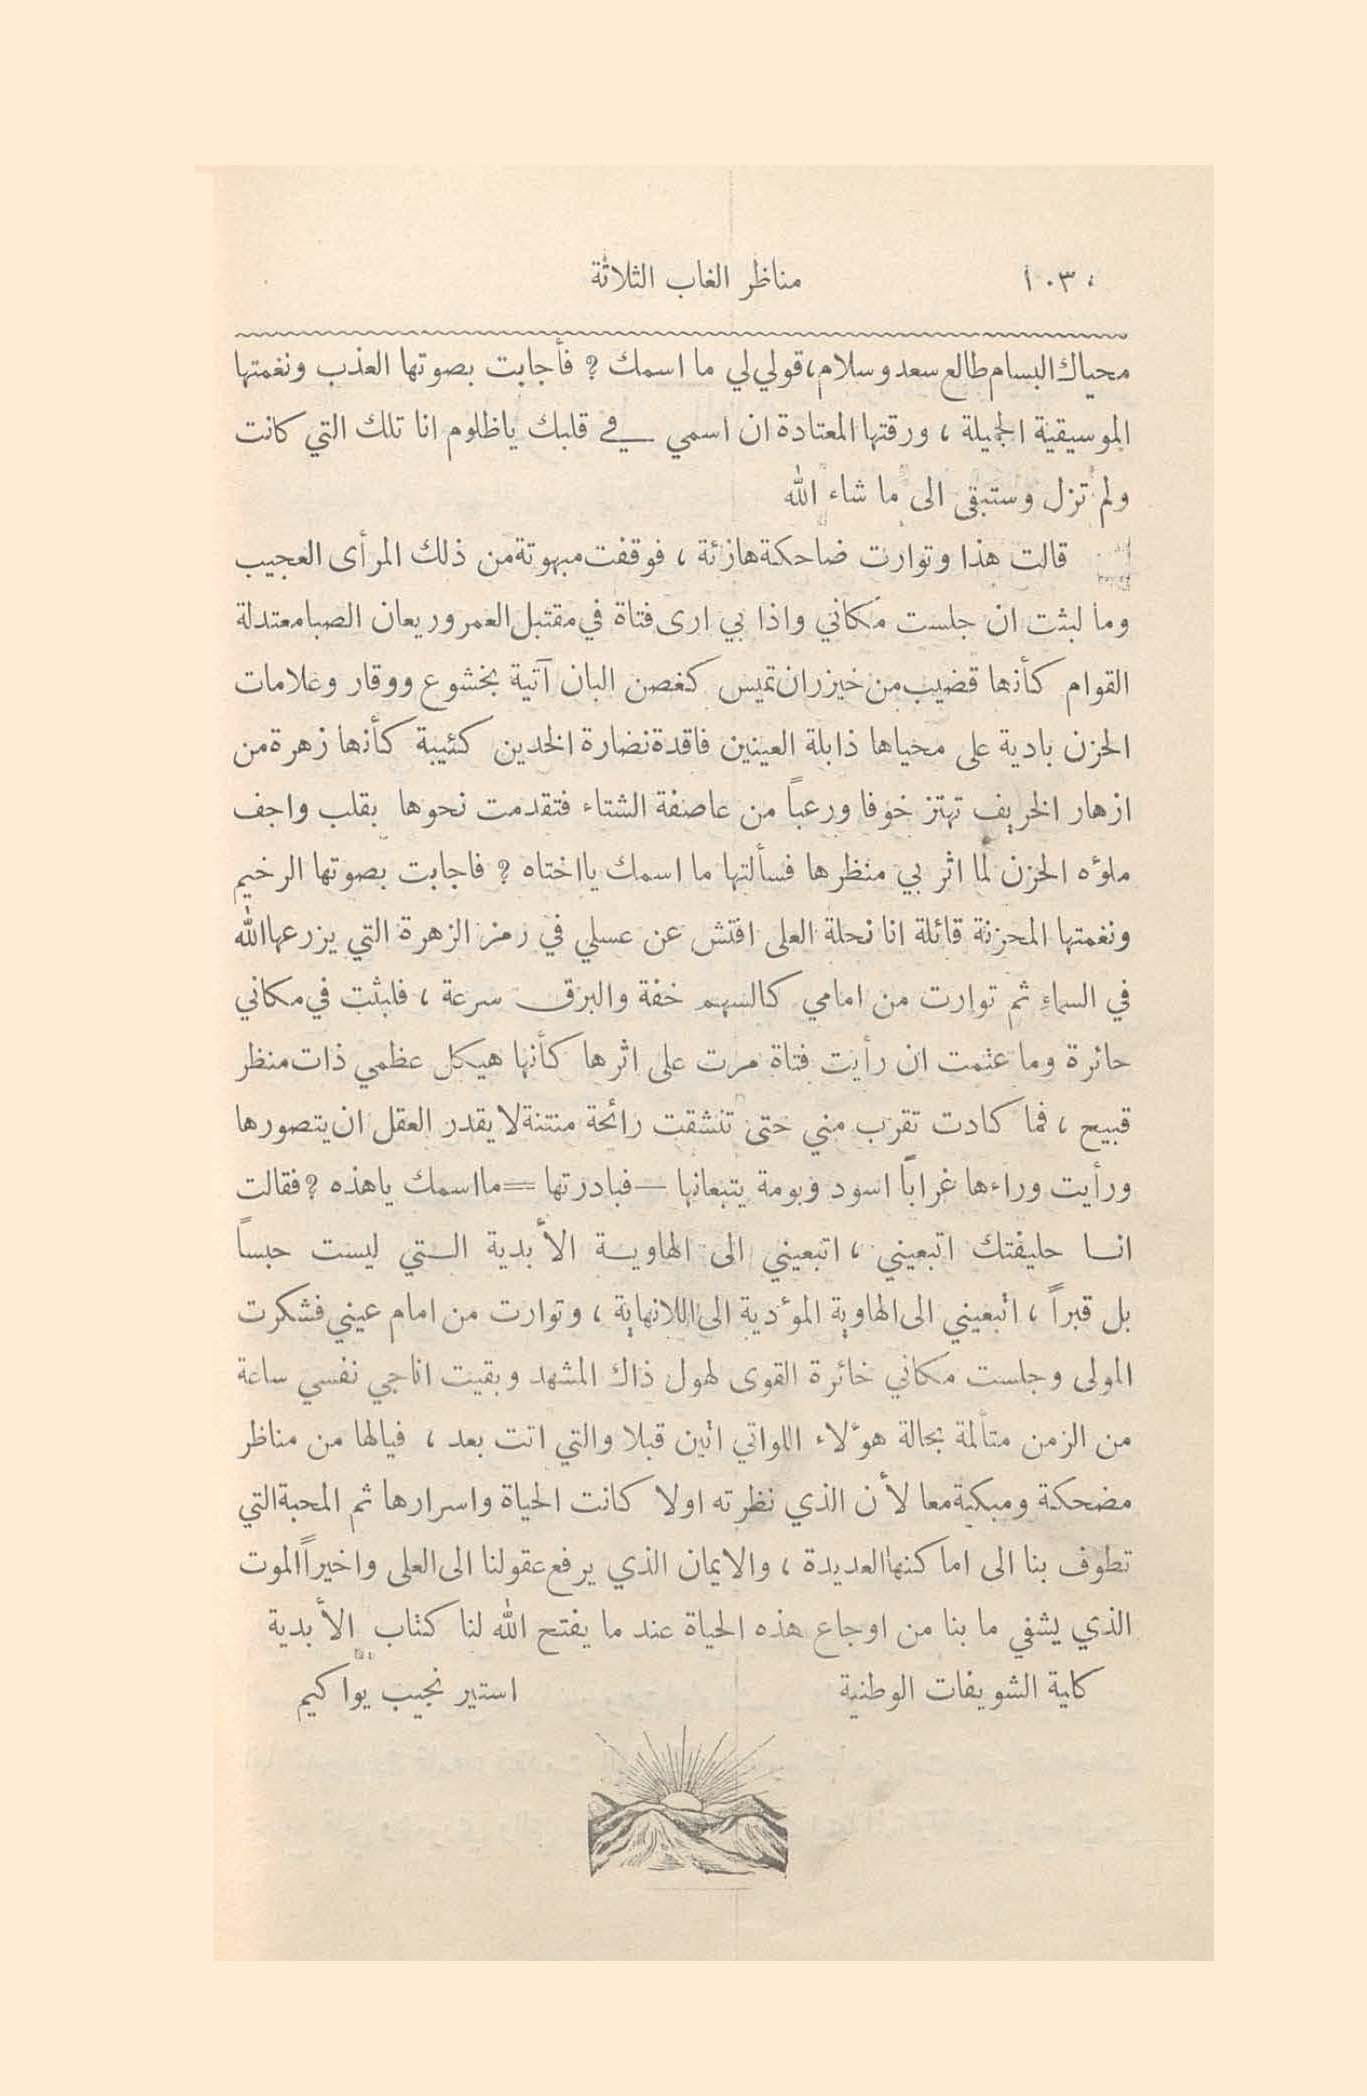 ١٠٣٠ مناظر الغاب الثلاثة
محياك البسام طالع سعد وسلام، قولي لي ما اسمك ? فأجابت بصوتها العذب ونغمتها
الموسيقية الجميلة ، ورقتها المعتادة ان اسمي في قلبك ياظلوم انا تلك التي كانت
ولم تزل وستبقى الى ما شاء الله
قالت هذا وتوارت ضاحكة هازئة ، فوقفت مبهوتة من ذلك المرأى العجيب
وما لبثت ان جلست مكاني واذا بي ارى فتاة في مقتبل العمر وريعان الصبا معتدلة
القوام كأنها قضيب من خيزران تميس كغصن البان آتية بخشوع ووقار وعلامات
الحزن بادية على محياها ذابلة العينين فاقدة نضارة الخدين كئيبة كأنها زهرة من
ازهار الخريف تهتز خوفا ورعباً من عاصفة الشتاء فتقدمت نحوها بقلب واجف
ملؤه الحزن لما اثر بي منظرها فسألتها ما اسمك يااختاه ? فاجابت بصوتها الرخيم
ونغمتها المحزنة قائلة انا نحلة العلى افتش عن عسلي في رمز الزهرة التي يزرعها الله
في السماء ثم توارت من امامي كالسهم خفة والبرق سرعة ، فلبثت في مكاني
حائرة وما عتمت ان رأيت فتاة مرت على اثرها كأنها هيكل عظمي ذات منظر
قبيح ، فما كادت تقرب مني حتى تنشقت رائحة منتنة لا يقدر العقل ان يتصورها
ورأيت وراءها غراباً اسود وبومة يتبعانها — فبادرتها = ما اسمك ياهذه ? فقالت
انا حليفتك اتبعيني ، اتبعيني الى الهاوية الأبدية التي ليست حبساً
بل قبراً ، اتبعيني الى الهاوية المؤدية الى اللانهاية ، وتوارت من امام عيني فشكرت
المولى وجلست مكاني خائرة القوى لهول ذاك المشهد وبقيت اناجي نفسي ساعة
من الزمن متألمة بحالة هؤلاء اللواتي اتين قبلا والتي اتت بعد ، فيالها من مناظر
مضحكة ومبكية معا لأن الذي نظرته اولا كانت الحياة واسرارها ثم المحبة التي
تطوف بنا الى اماكنها العديدة ، والايمان الذي يرفع عقولنا الى العلى واخيراً الموت
الذي يشفي ما بنا من اوجاع هذه الحياة عند ما يفتح الله لنا كتاب الأبدية
كلية الشويفات الوطنية استير نجيب يواكيم